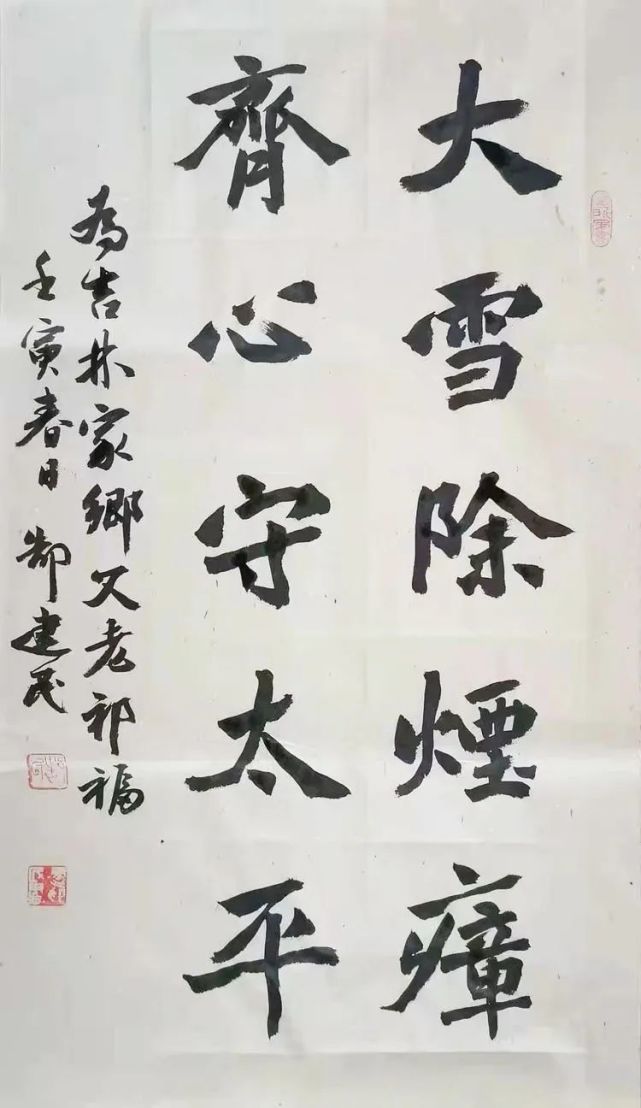 大雪除煙瘴
齊心守太平
為吉林家鄉父老祁福
壬寅春日 郜建民